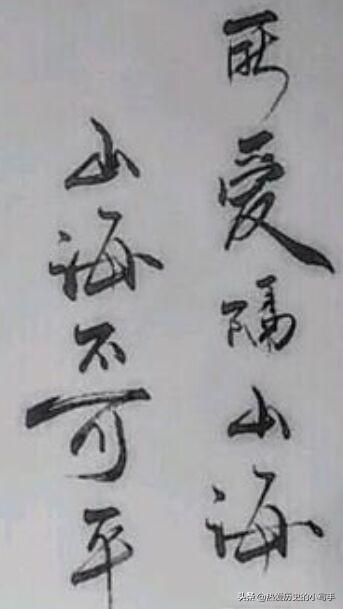 所爱隔山海
山海不可平
头条 @热爱历史的小写手